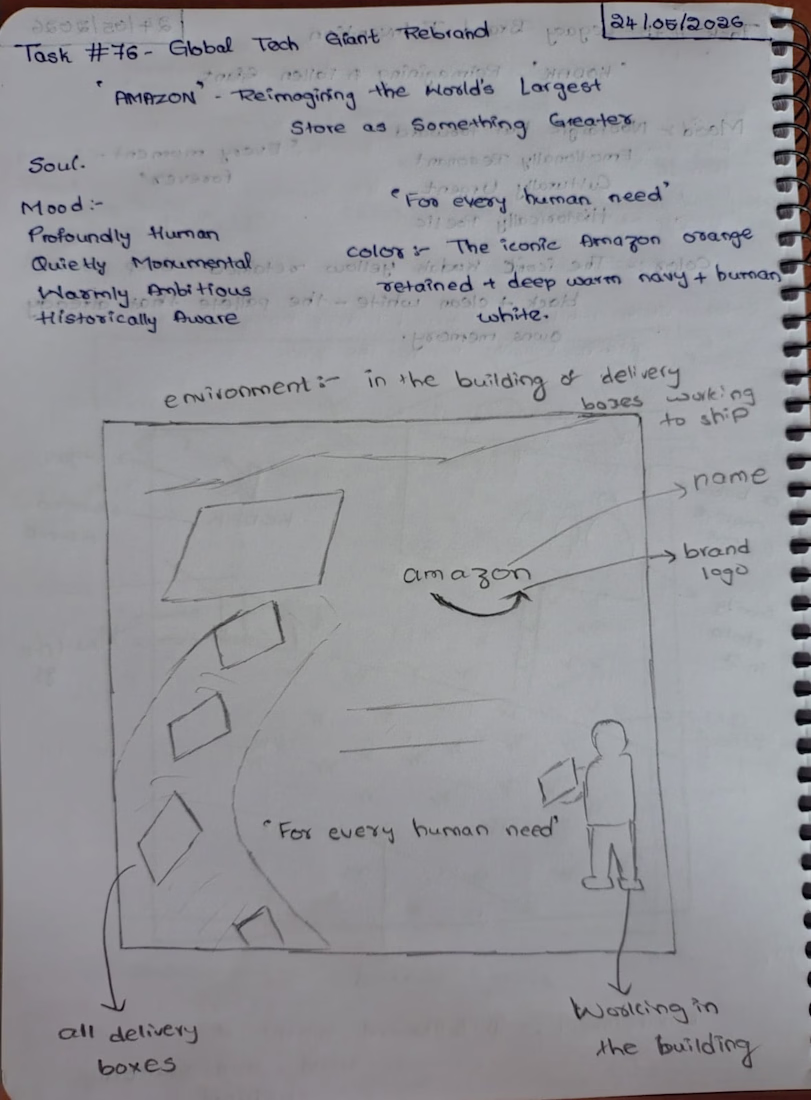 24/05/2026
Task #76 - Global Tech Giant Rebrand
"AMAZON" - Reimagining the World's Largest
Store as Something Greater
Soul.
Mood:-
Profoundly Human
Quietly Monumental
Warmly Ambitious
Historically Aware
"For every human need"
color:- The iconic Amazon orange
retained + deep warm navy + human
white.
environment:- in the building of delivery
boxes working
to ship
name
amazon
brand
logo
"For every human need"
all delivery
boxes
Working in
the building